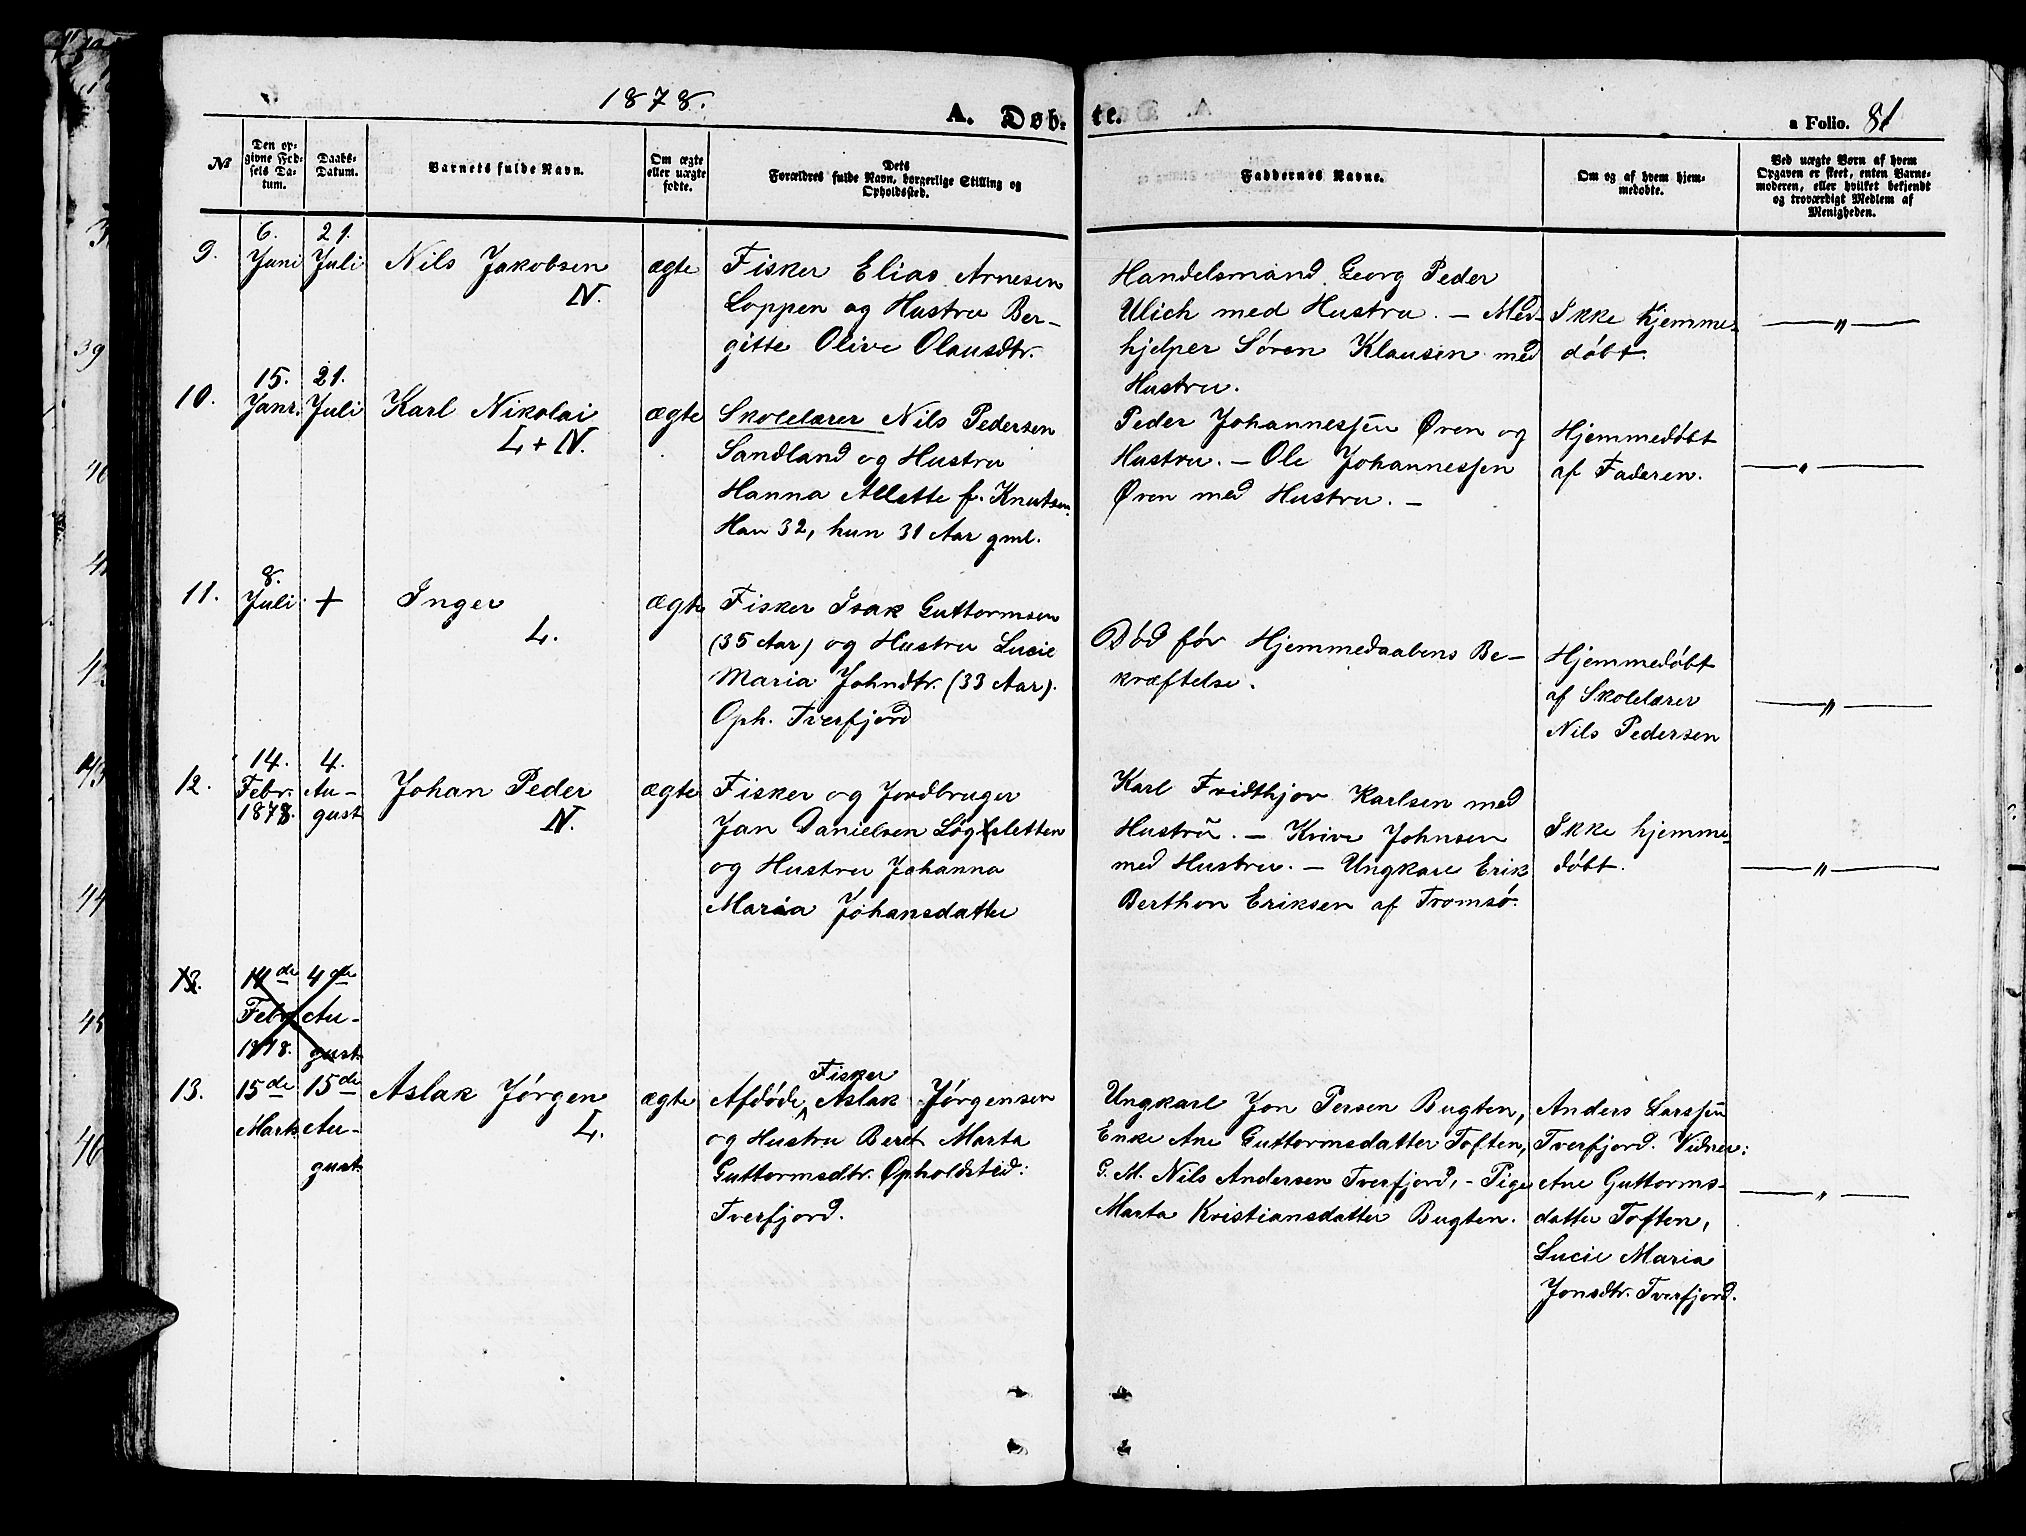 1878.
A. Døb-
te.
a Folio. 81
No
Den op-
givne Fød-
sels Da-
tum.
Daabs-
Datum.
Barnets fulde Navn.
Om ægte
eller uægte
fødte.
Dets
Forældres fulde Navn, borgerlige Stilling og
Opholdssted.
Faddernes Navne.
Om og af hvem hjem-
medøbte.
Ved uægte Børn af hvem
Opgaven er skeet, enten Barne-
moderen, eller hvilket bekjendt
og troværdigt Medlem af
Menigheden.
9.
6.
Juni
21.
Juli
Nils Jakobsen
N.
ægte
Fisker Elias Arnesen
Loppen og Hustru Ber-
gitte Olive Olausdtr.
Handelsmand Georg Peder
Ulich med Hustru. - Med-
hjelper Søren Klausen med
Hustru.
Ikke hjemme-
døbt.
— " —
10.
15.
Janr.
21.
Juli
Karl Nikolai
L + N.
ægte
Skolelærer Nils Pedersen
Sandland og Hustru
Hanna Allette f. Knutsen
Han 32, hun 31 Aar gml.
Peder Johannessen Øren og
Hustru. - Ole Johannessen
Øren med Hustru. -
Hjemmedøbt
af Faderen.
— " —
11.
8.
Juli
+
Inger
L.
ægte
Fisker Isak Guttormsen
(35 Aar) og Hustru Lucie
Maria Johndtr. (33 Aar).
Oph. Tverfjord
Død før Hjemmedaabens Be-
kræftelse.
Hjemmedøbt
af Skolelærer
Nils Pedersen
— " —
12.
14.
Febr.
1878.
4.
Au-
gust
Johan Peder
N.
ægte
Fisker og Jordbruger
Jan Danielsen Løgsletten
og Hustru Johanna
Maria Johansdatter
Karl Fridthjov Karlsen med
Hustru. - Kvive Johnsen
med Hustru. - Ungkare Erik
Berthon Eriksen af Tromsø.
Ikke hjemme-
døbt.
— " —
13.
14de
Febr.
1878.
4de
Au-
gust
13.
15de
Marts
15de
Au-
gust
Aslak Jørgen
L.
ægte
Fisker
Afdøde Aslak Jørgensen
og Hustru Beret Marta
Guttormsdtr. Opholdsted:
Tverfjord.
Ungkarl Jon Persen Bugten,
Enke Ane Guttormsdatter Toften,
G. M. Nils Andersen Tverfjord, - Pige
Marta Kristiansdatter Bugten.
Anders Larssen
Tverfjord. Vidner:
Ane Guttorms-
datter Toften,
Lucie Maria
Jonsdtr. Tverfjord.
— " —
39
40
42
43
44
45
46